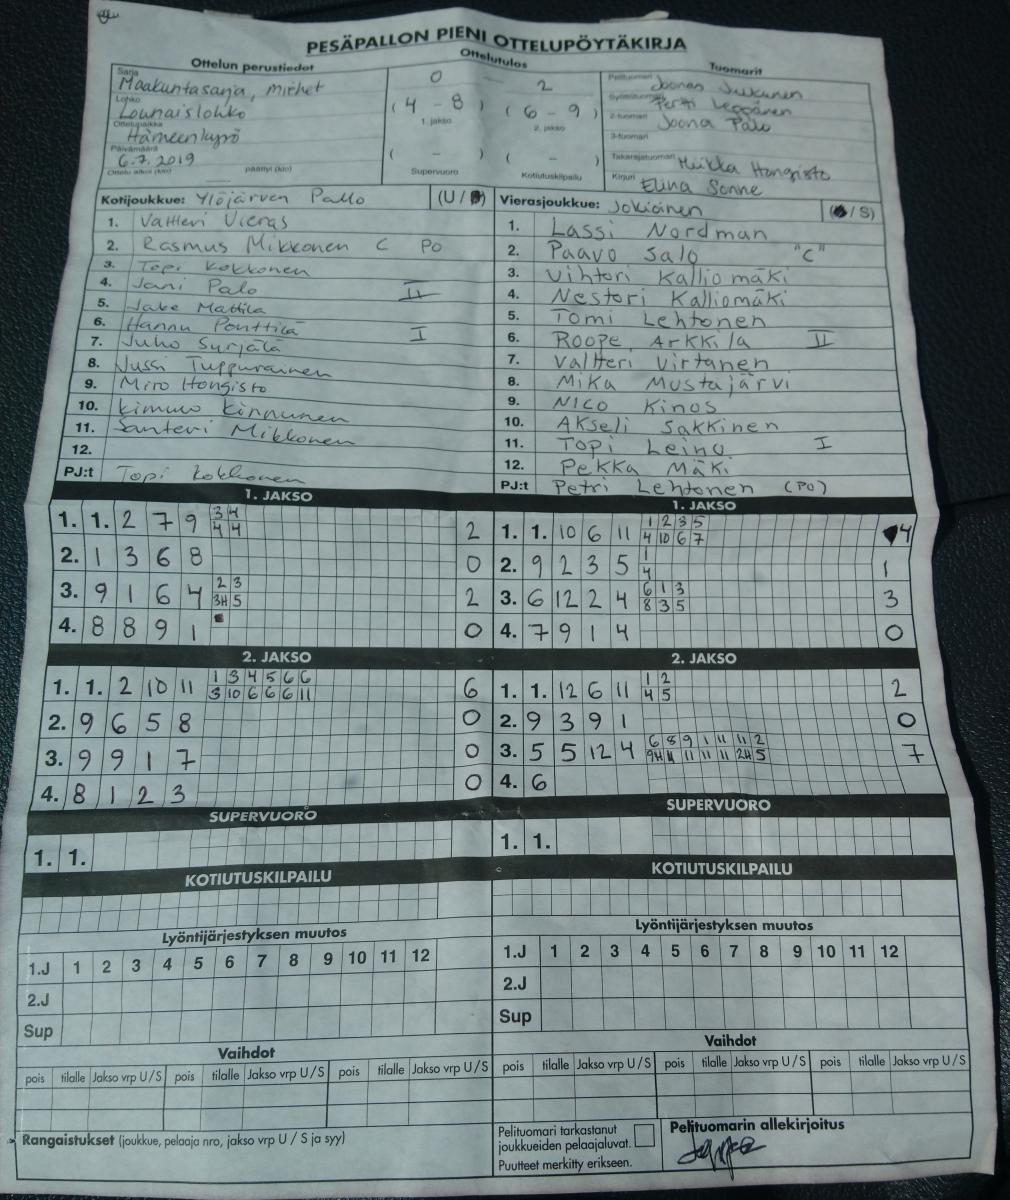 PESÄPALLON PIENI OTTELUPÖYTÄKIRJA
Ottelun perustiedot
Ottelutulos
Tuomarit
Sarja
Maakuntasarja, miehet
Lohko
Lounaislohko
Ottelupaikka
Hämeenkyrö
Päivämäärä
6.7.2019
Ottelu alkoi (klo) päättyi (klo)
0 — 2
( 4 - 8 ) ( 6 - 9 )
1. jakso 2. jakso
( - ) ( - )
Supervuoro Kotiutuskilpailu
Pelituomari Joonas
Syöttötuomari Pertti Leppänen
2-tuoman Joona Palo
3-tuomari
Takarajatuomari Miikka Hongisto
Kirjuri Elina Sonne
Kotijoukkue: Ylöjärven Pallo (U / )
1. Valtteri Vieras
2. Rasmus Mikkonen C PO
3. Topi Kokkonen
4. Jani Palo II
5. Jake Mattila
6. Hannu Ponttila I
7. Juho Surjälä
8. Jussi Tuppurainen
9. Miro Hongisto
10. Kimmo Kinnunen
11. Santeri Mikkonen
12.
PJ:t Topi Kokkonen
Vierasjoukkue: Jokioinen ( / S)
1. Lassi Nordman
2. Paavo Salo "C"
3. Vihtori Kalliomäki
4. Nestori Kalliomäki
5. Tomi Lehtonen
6. Roope Arkkila II
7. Valtteri Virtanen
8. Mika Mustajärvi
9. Nico Kinos
10. Akseli Sakkinen
11. Topi Leino I
12. Pekka Mäki
PJ:t Petri Lehtonen (PO)
1. JAKSO
3 4
1. 1. 2 7 9 2
4 4
2. 1 3 6 8 0
2 3
3. 9 1 6 4 2
3H 5
4. 8 8 9 1 0
2. JAKSO
1 3 4 5 6 6
1. 1. 2 10 11 6
3 10 6 6 6 11
2. 9 6 5 8 0
3. 9 9 1 7 0
4. 8 1 2 3 0
SUPERVUORO
1. 1.
KOTIUTUSKILPAILU
Lyöntijärjestyksen muutos
1.J 1 2 3 4 5 6 7 8 9 10 11 12
2.J
Sup
Vaihdot
pois tilalle Jakso vrp U/S pois tilalle Jakso vrp U/S pois tilalle Jakso vrp U/S
Rangaistukset (joukkue, pelaaja nro, jakso vrp U / S ja syy)
1. JAKSO
1 2 3 5
1. 1. 10 6 11 4
4 10 6 7
1
2. 9 2 3 5 1
4
6 1 3
3. 6 12 2 4 3
8 3 5
4. 7 9 1 4 0
2. JAKSO
1 2
1. 1. 12 6 11 2
4 5
2. 9 3 9 1 0
6 8 9 1 11 11 2
3. 5 5 12 4 7
9H 11 11 11 11 2H 5
4. 6
SUPERVUORO
1. 1.
KOTIUTUSKILPAILU
Lyöntijärjestyksen muutos
1.J 1 2 3 4 5 6 7 8 9 10 11 12
2.J
Sup
Vaihdot
pois tilalle Jakso vrp U/S pois tilalle Jakso vrp U/S pois tilalle Jakso vrp U/S
Pelituomari tarkastanut
joukkueiden pelaajaluvat.
Puutteet merkitty erikseen.
Pelituomarin allekirjoitus